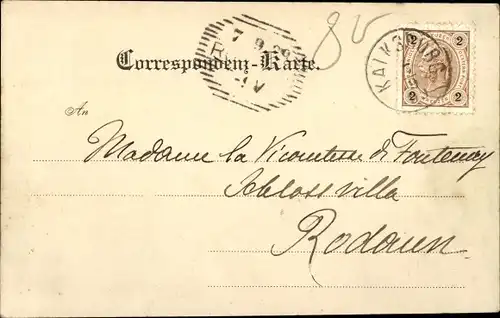 7 9 99
R
-9 V
8 V
KALKSBURG
2 2
2 2
Correspondenz-Karte.
An
Madame la Vicomtesse de Fontenay
Schlossvilla
Rodaun